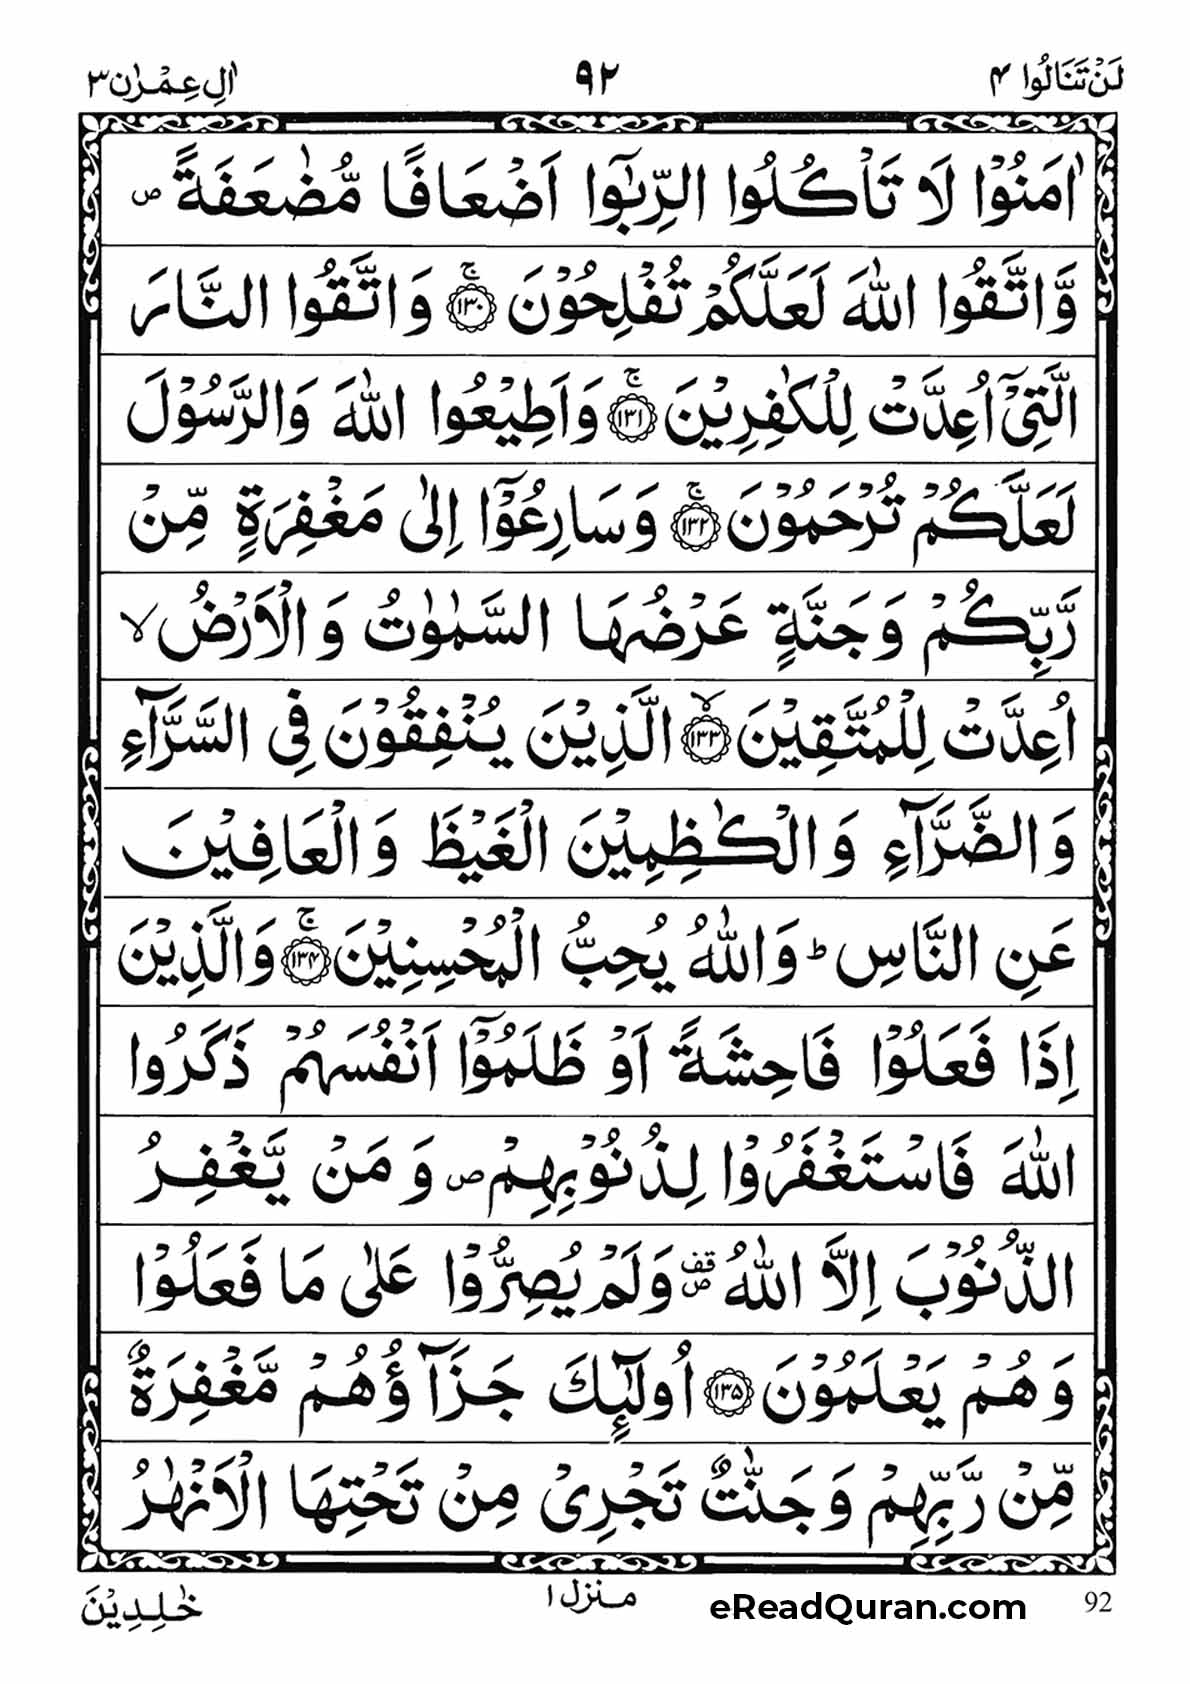 لَنْ تَنَالُوا ۴ ۹۲ اٰلِ عِمْرٰن ۳
اٰمَنُوْا لَا تَاْكُلُوا الرِّبٰۤوا اَضْعَافًا مُّضٰعَفَةً ۪
وَّاتَّقُوا اللّٰهَ لَعَلَّكُمْ تُفْلِحُوْنَ ۚ ﴿۱۳۰﴾ وَاتَّقُوا النَّارَ
الَّتِیْۤ اُعِدَّتْ لِلْكٰفِرِیْنَ ۚ ﴿۱۳۱﴾ وَاَطِیْعُوا اللّٰهَ وَالرَّسُوْلَ
لَعَلَّكُمْ تُرْحَمُوْنَ ۚ ﴿۱۳۲﴾ وَسَارِعُوْۤا اِلٰی مَغْفِرَةٍ مِّنْ
رَّبِّكُمْ وَجَنَّةٍ عَرْضُهَا السَّمٰوٰتُ وَالْاَرْضُ ۙ
اُعِدَّتْ لِلْمُتَّقِیْنَ ۙ ﴿۱۳۳﴾ الَّذِیْنَ یُنْفِقُوْنَ فِی السَّرَّآءِ
وَالضَّرَّآءِ وَالْكٰظِمِیْنَ الْغَیْظَ وَالْعَافِیْنَ
عَنِ النَّاسِ ؕ وَاللّٰهُ یُحِبُّ الْمُحْسِنِیْنَ ۚ ﴿۱۳۴﴾ وَالَّذِیْنَ
اِذَا فَعَلُوْا فَاحِشَةً اَوْ ظَلَمُوْۤا اَنْفُسَهُمْ ذَكَرُوا
اللّٰهَ فَاسْتَغْفَرُوْا لِذُنُوْبِهِمْ ۪ وَمَنْ یَّغْفِرُ
الذُّنُوْبَ اِلَّا اللّٰهُ ۪۫ وَلَمْ یُصِرُّوْا عَلٰی مَا فَعَلُوْا
وَهُمْ یَعْلَمُوْنَ ﴿۱۳۵﴾ اُولٰٓئِكَ جَزَآؤُهُمْ مَّغْفِرَةٌ
مِّنْ رَّبِّهِمْ وَجَنّٰتٌ تَجْرِیْ مِنْ تَحْتِهَا الْاَنْهٰرُ
92 eReadQuran.com منزل ۱ خٰلِدِیْنَ